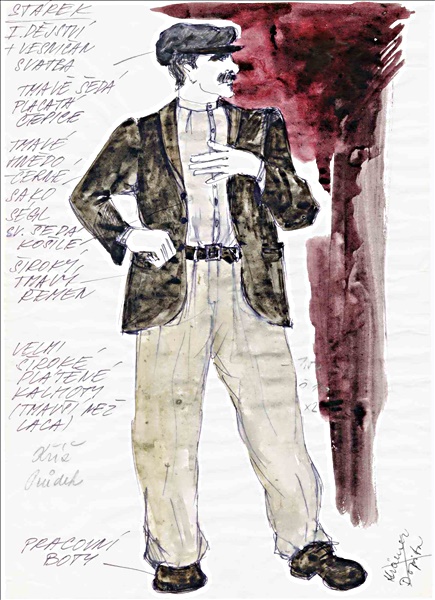 STAREK
I. DĚJSTVÍ
+ VESNIČAN
SVATBA
TMAVĚ ŠEDÁ
PLACATÁ
ČEPICE
TMAVĚ
HNĚDO
ČERNÉ
SAKO
SV. ŠEDÁ
KOŠILE
ŠIROKÝ
TMAVÝ
ŘEMEN
VELMI
ŠIROKÉ
PLÁTĚNÉ
KALHOTY
(TMAVŠÍ NEŽ
LACA)
PRACOVNÍ
BOTY